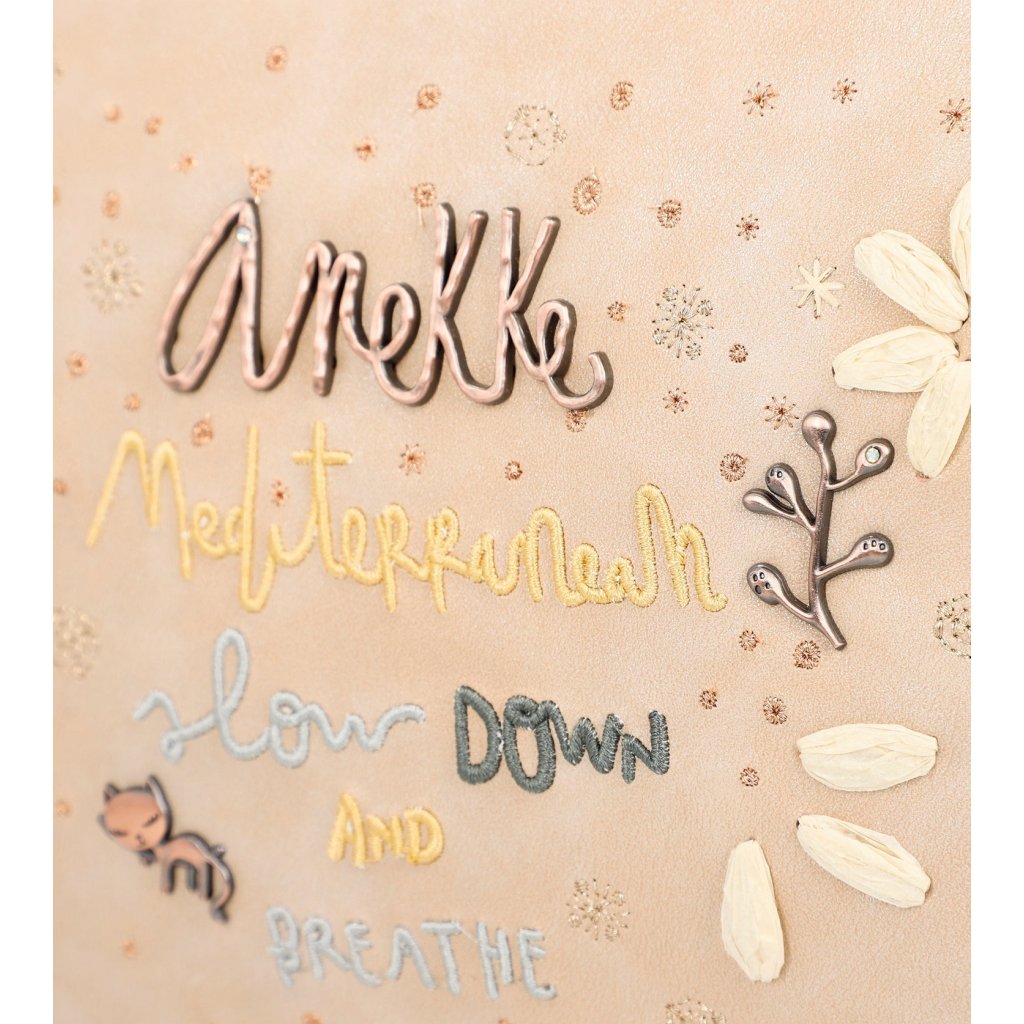 Anekke
Mediterranean
slow DOWN
AND
BREATHE